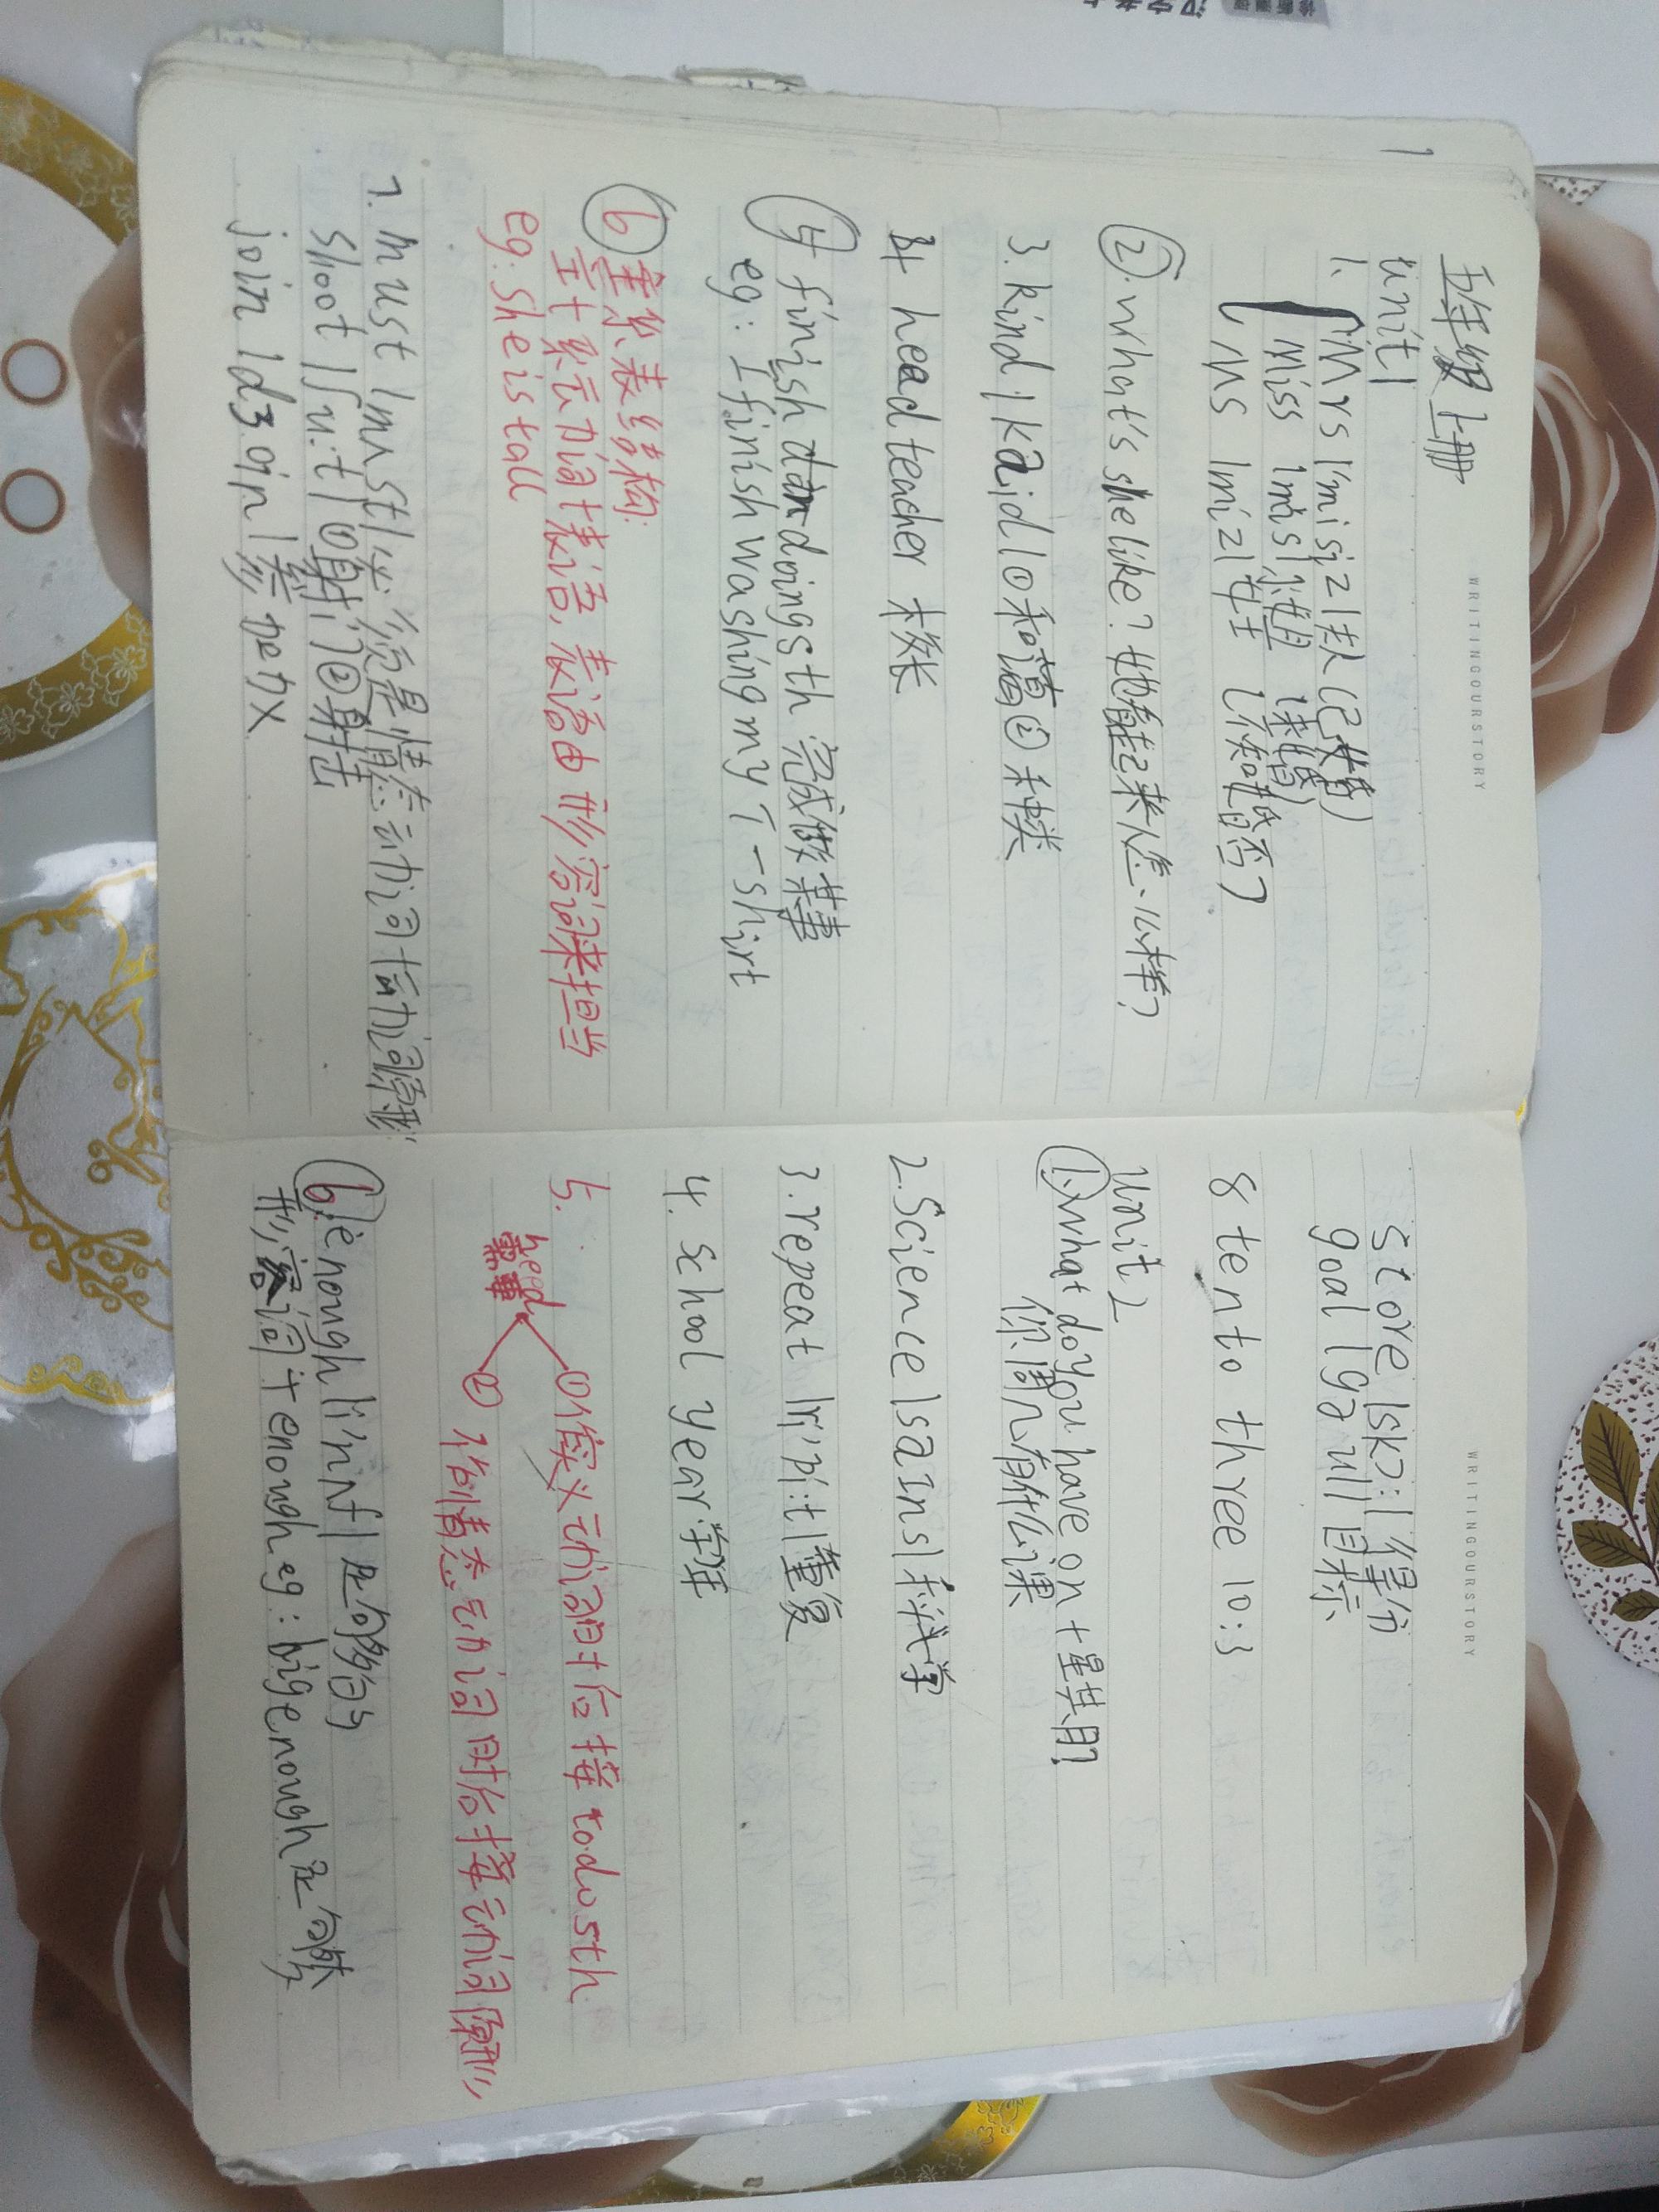 WRITINGOURSTORY
五年级上册
unit1
1. Mrs |'misiz| 夫人(已婚)
Miss |mis| 小姐 (未婚)
Ms |miz| 女士 (不知婚否)
②.What's she like? 她看起来怎么样?
3. kind |kaid| ①和蔼 ② 种类
4 head teacher 校长
5 finish doing sth 完成做某事
eg: I finish washing my T-shirt
⑥ 主系表结构:
主+系动词+表语, 表语由形容词来担当
eg. She is tall
7. must |mʌst| 必须是情态动词+动词原形
shoot |ʃu:t| ①射门②射击
join |dʒoin| 参加
WRITINGOURSTORY
store |skɔ:| 得分
goal |gəul| 目标
8 ten to three 10:3
unit 2
①.What do you have on + 星期?
你周几有什么课
2. Science |saIns| 科学
3. repeat |ri'pi:t| 重复
4. school year 学年
5.
need
需要
① 作实义动词时后接 to do sth
② 作情态动词时后接动词原形
⑥. enough |i'nʌf| 足够的
形容词+enough eg: big enough 足够大